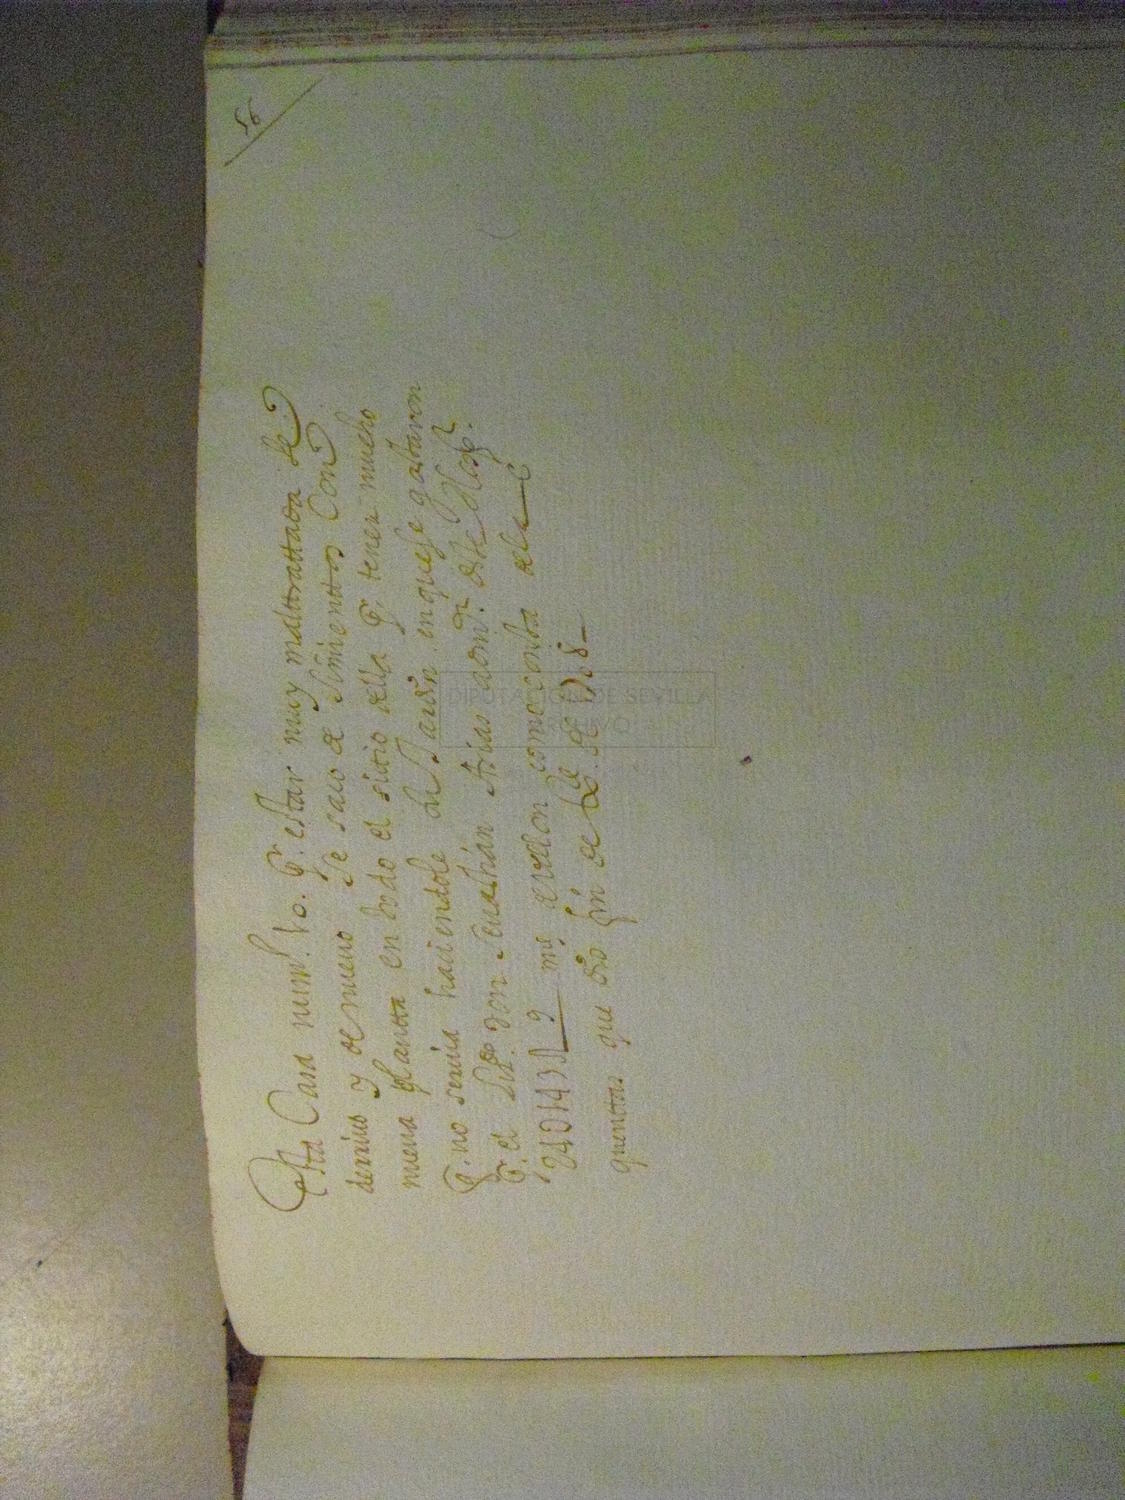 56
Esta Casa num.º 10. p.r estar muy maltrattada se
derriuo y de nueuo se saco de simientos Con
nueua plantta en todo el sittio della p.r tener mucho
q.e no seruia haciendole su Jardin en que se gastaron
p.r el Liz.do Don Seuastian Arias adm.or deste Hosp.l
mrs de vellon como consta de la
quenttas que dio fin de
DIPUTACION DE SEVILLA
ARCHIVO